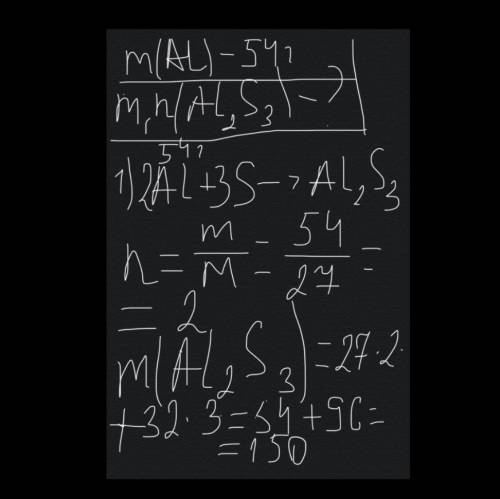 m(AL) - 54г
m, n(AL2S3) - ?
54г
1) 2AL + 3S -> AL2S3
n = m/M = 54/27 =
= 2
m(AL2S3) = 27·2·
+ 32·3 = 54 + 96 =
= 150